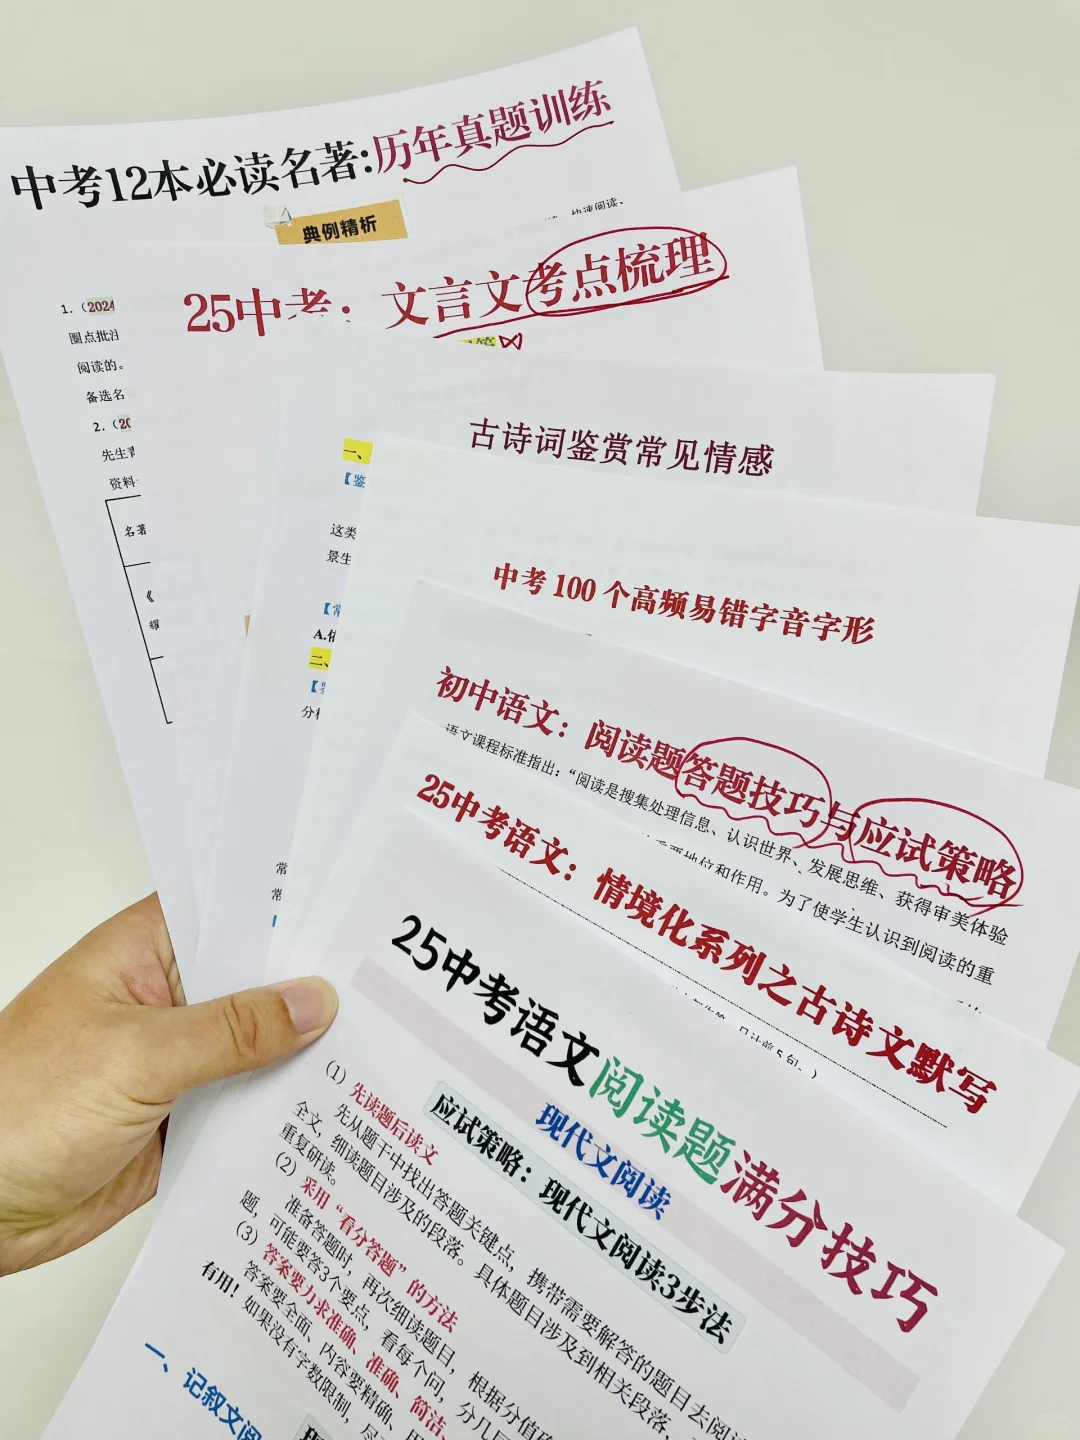 中考12本必读名著:历年真题训练
典例精析
快速阅读、
1.（2024
圈点批注
阅读的。
备选名
2.（20
先生
资料
名著
《
耀
25中考：文言文考点梳理
古诗词鉴赏常见情感
一、
【鉴
这类
景生
【常
A.依
二、
【
分析
常
常
中考 100 个高频易错字音字形
初中语文：阅读题答题技巧与应试策略
语文课程标准指出：“阅读是搜集处理信息、认识世界、发展思维、获得审美体验
重要地位和作用。为了使学生认识到阅读的重
25中考语文：情境化系列之古诗文默写
只计前5句。）
25中考语文阅读题满分技巧
现代文阅读
应试策略：现代文阅读3步法
（1）先读题后读文
先从题干中找出答题关键点，携带需要解答的题目去阅读
全文，细读题目涉及的段落。具体题目涉及到相关段落，
重复研读。
（2）采用“看分答题”的方法
准备答题时，再次细读题目，根据分值确
题，可能要答3个要点，看每个问，分几层
（3）答案要力求准确、准确、简洁、
答案要全面、内容要精确、
有用！如果没有字数限制，尽
一、记叙文阅